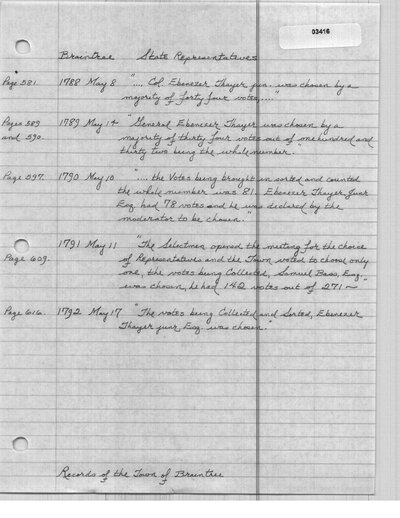 03416
Braintree State Representatives
Page 581. 1788 May 8 "... Col. Ebenezer Thayer jun. was chosen by a
majority of forty four votes,...."
Pages 589 1789 May 14 "General Ebenezer Thayer was chosen by a
and 590. majority of thirty four votes out of one hundred and
thirty two being the whole number."
Page 597. 1790 May 10 "... the Votes being brought in sorted and counted
the whole number was 81. Ebenezer Thayer Junr
Esq. had 78 votes and he was declared by the
moderator to be chosen."
1791 May 11 "The Selectmen opened the meeting for the choice
Page 609. of Representatives and the Town voted to choose only
one, the votes being Collected, Samuel Bass, Esq."
was chosen, he had 142 votes out of 271 ~
Page 616. 1792 May 17 "The votes being Collected and Sorted, Ebenezer
Thayer junr, Esq. was chosen."
Records of the Town of Braintree